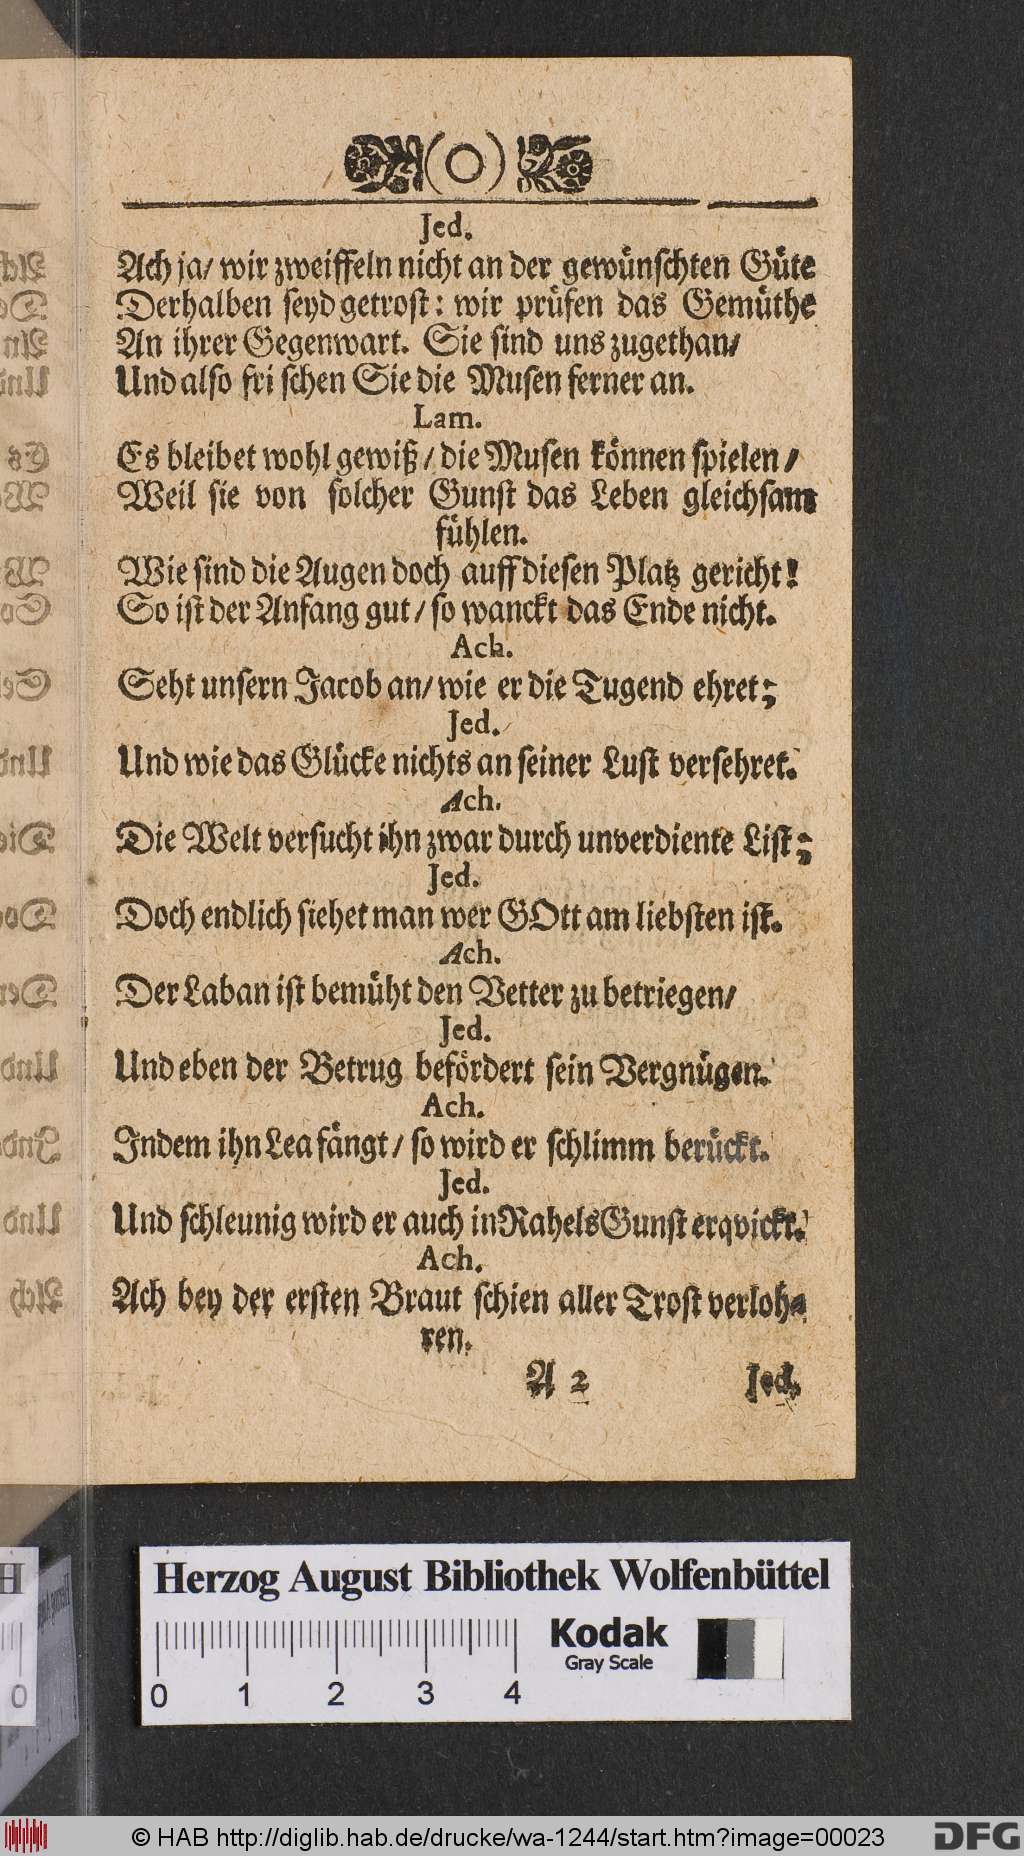 (O)
Jed.
Ach ja/ wir zweiffeln nicht an der gewünschten Güte
Derhalben seyd getrost: wir prüfen das Gemüthe
An ihrer Gegenwart. Sie sind uns zugethan/
Und also fri schen Sie die Musen ferner an.
Lam.
Es bleibet wohl gewiß/ die Musen können spielen/
Weil sie von solcher Gunst das Leben gleichsam
fühlen.
Wie sind die Augen doch auff diesen Platz gericht!
So ist der Anfang gut/ so wanckt das Ende nicht.
Ach.
Seht unsern Jacob an/ wie er die Tugend ehret;
Jed.
Und wie das Glücke nichts an seiner Lust versehret.
Ach.
Die Welt versucht ihn zwar durch unverdiente List;
Jed.
Doch endlich siehet man wer GOtt am liebsten ist.
Ach.
Der Laban ist bemüht den Vetter zu betriegen/
Jed.
Und eben der Betrug befördert sein Vergnügen.
Ach.
Indem ihn Lea fängt/ so wird er schlimm berückt.
Jed.
Und schleunig wird er auch in Rahels Gunst erqvickt.
Ach.
Ach bey der ersten Braut schien aller Trost verloh-
ren.
A 2 Jed.
Herzog August Bibliothek Wolfenbüttel
Kodak
Gray Scale
0 1 2 3 4
© HAB http://diglib.hab.de/drucke/wa-1244/start.htm?image=00023
DFG